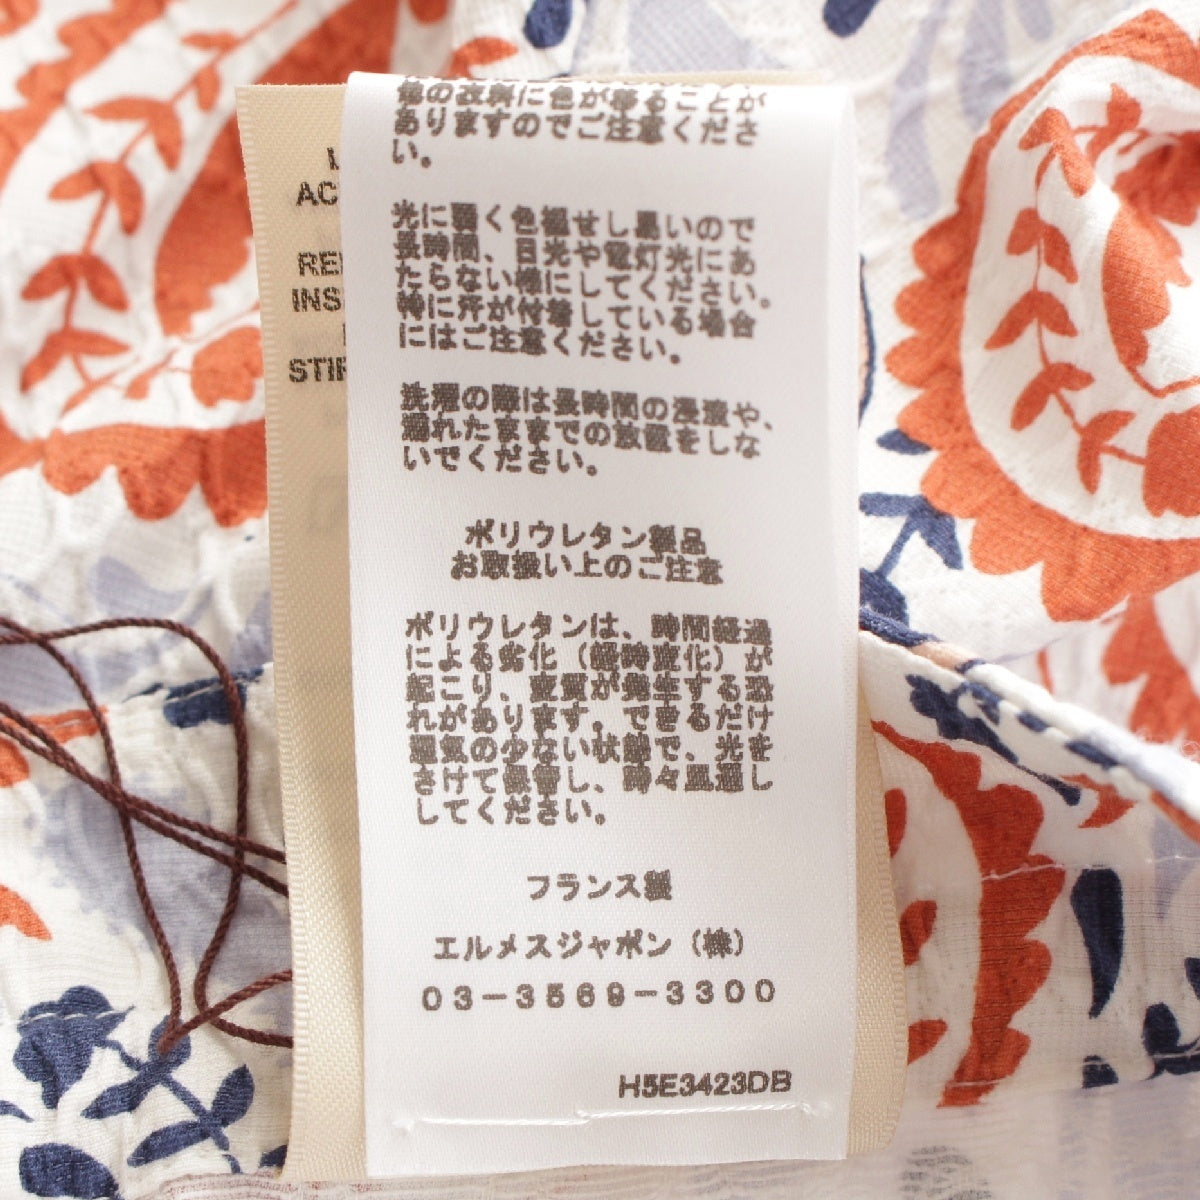 他の衣料に色が移ることが
ありますのでご注意くださ
い。
光に弱く色褪せし易いので
長時間、日光や電灯光にあ
たらない様にしてください。
特に汗が付着している場合
にはご注意ください。
洗濯の際は長時間の浸漬や、
濡れたままでの放置をしな
いでください。
ポリウレタン製品
お取扱い上のご注意
ポリウレタンは、時間経過
による劣化（経時変化）が
起こり、変質が発生する恐
れがあります。できるだけ
湿気の少ない状態で、光を
さけて保管し、時々風通し
してください。
フランス製
エルメスジャポン（株）
03-3569-3300
H5E3423DB
AC
REI
INS
STIF